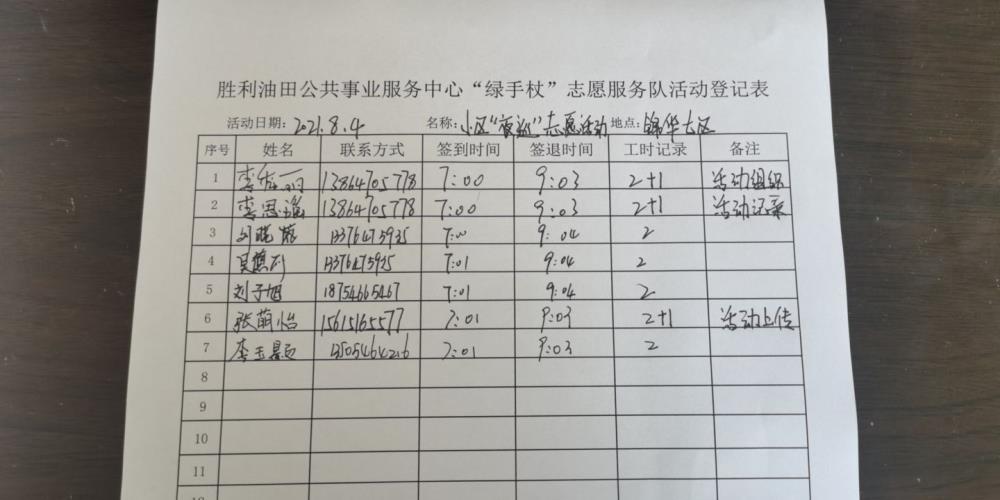 胜利油田公共事业服务中心“绿手杖”志愿服务队活动登记表
活动日期：2021.8.4 名称：小区“夜巡”志愿活动 地点：锦华七区
序号 姓名 联系方式 签到时间 签退时间 工时记录 备注
1 李秀丽 13864705778 7:00 9:03 2+1 活动组织
2 李思瑶 13864705778 7:00 9:03 2+1 活动记录
3 刘 13376473935 7:00 9:04 2
4 7:01 9:04 2
5 刘子旭 18754665467 7:01 9:04 2
6 张萌怡 15615165577 7:01 9:03 2+1 活动上传
7 李玉 13505464216 7:01 9:03 2
8
9
10
11